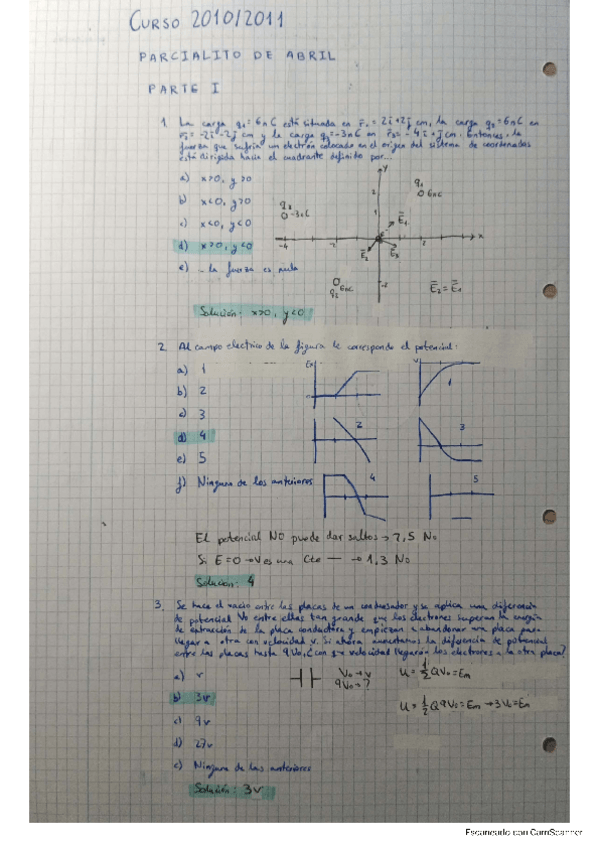 CURSO 2010/2011
PARCIALITO DE ABRIL
PARTE I
1. La carga q₁ = 6nC está situada en r₁ = 2i+2j cm, la carga q₂ = 6nC en
r₂ = -2i-2j cm y la carga q₃ = -3nC en r₃ = -4i+j cm. Entonces, la
fuerza que sufriría un electrón colocado en el origen del sistema de coordenadas
está dirigida hacia el cuadrante definido por...
a) x>0, y>0
b) x<0, y>0
c) x<0, y<0
d) x>0, y<0
e) - la fuerza es nula
y
2
q₁
6nC
q₃
-3nC
1
E₁
-4
2
x
E₂
E₃
6nC
q₂
-2
E₂ = E₁
Solución: x>0, y<0
2. Al campo electrico de la figura le corresponde el potencial:
a) 1
b) 2
c) 3
d) 4
e) 5
f) Ninguna de las anteriores
V
1
2
3
4
5
El potencial NO puede dar saltos → 2,5 No
Si E=0 → V es una Cte → 1,3 No
Solución: 4
3. Se hace el vacío entre las placas de un condensador y se aplica una diferencia
de potencial V₀ entre ellas tan grande que los electrones superan la energía
de extracción de la placa conductora y empiezan a abandonar una placa para
llegar a otra con velocidad v. Si ahora aumentamos la diferencia de potencial
entre las placas hasta 9V₀, ¿con que velocidad llegarán los electrones a la otra placa?
a) v
b) 3v
c) 9v
d) 27v
e) Ninguna de las anteriores
V₀ → v
9V₀ = ?
U = 1/2 QV₀ = Em
U = 1/2 Q9V₀ = Em → 3V₀ = Em
Solución: 3v
Escaneado con CamScanner